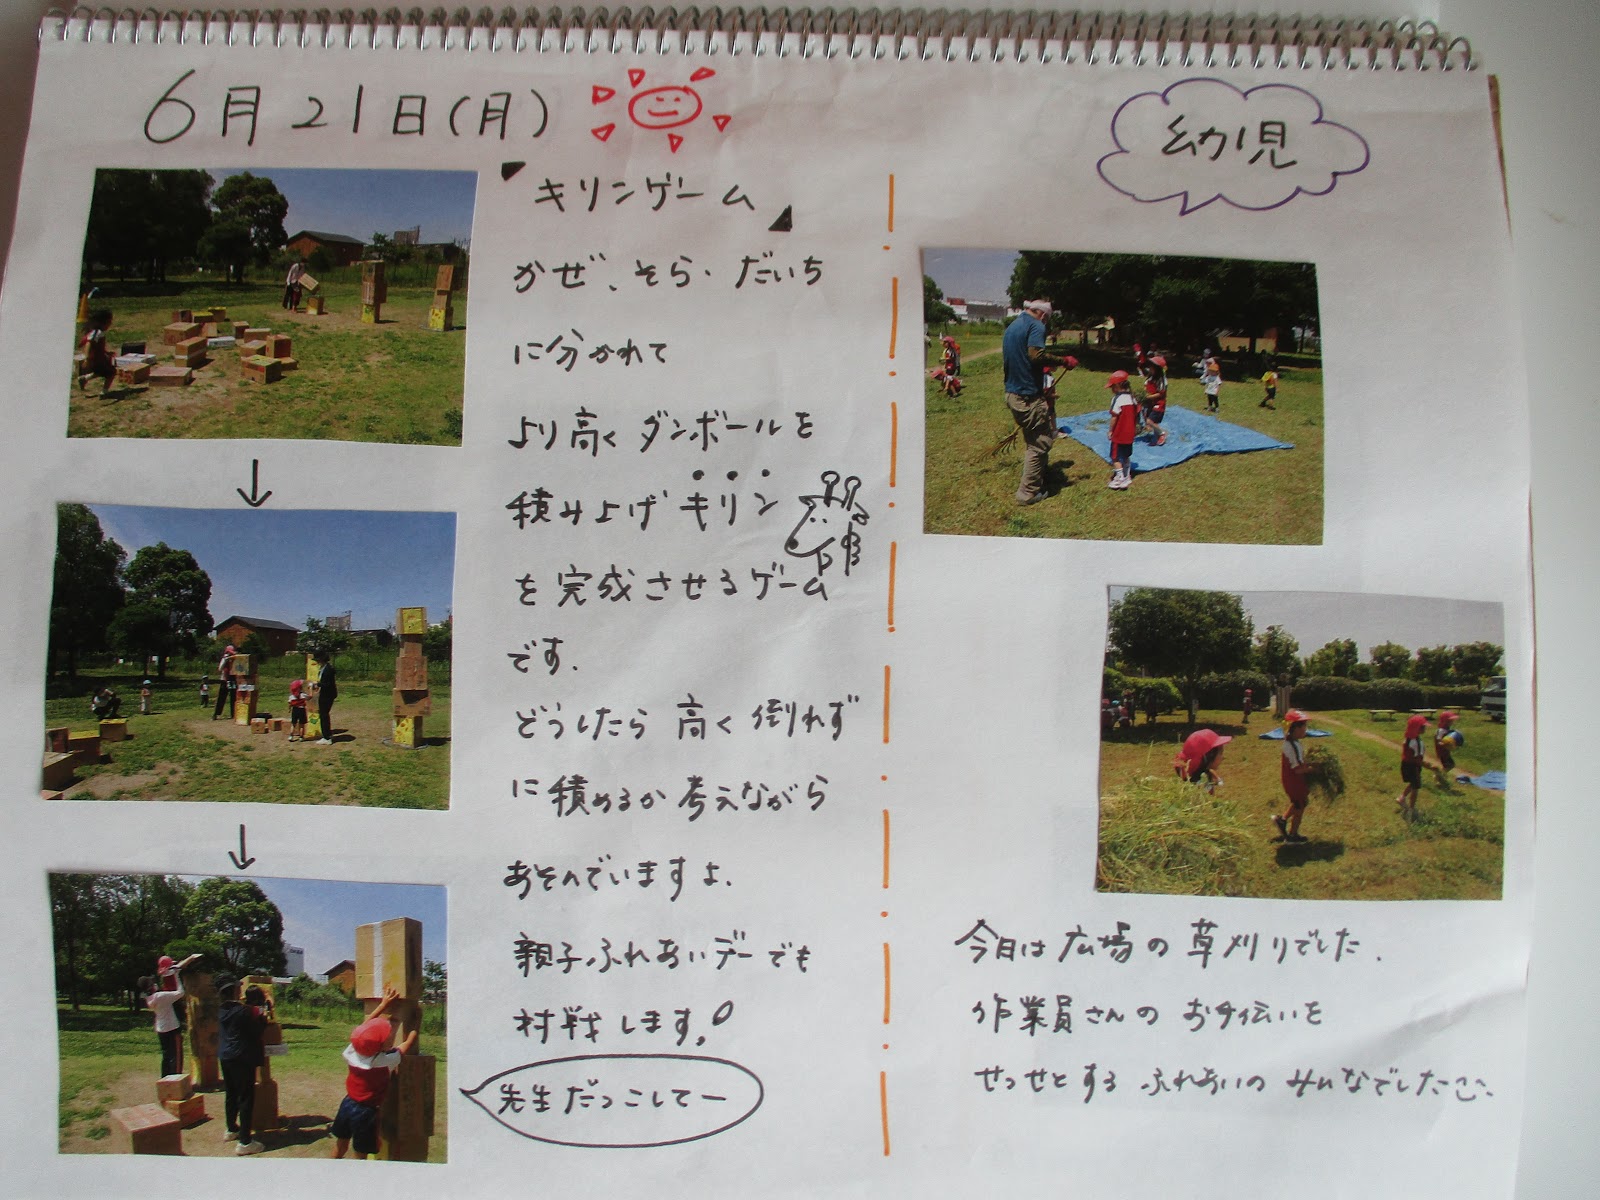 6月21日(月)
「キリンゲーム」
かぜ、そら・だいち
に分かれて
より高くダンボールを
積み上げキリン
を完成させるゲーム
です.
どうしたら高く倒れず
に積めるか考えながら
あそんでいますよ.
親子ふれあいデーでも
対戦します!
先生だっこしてー
幼児
今日は広場の草刈りでした.
作業員さんのお手伝いを
せっせとするふれあいのみんなでした